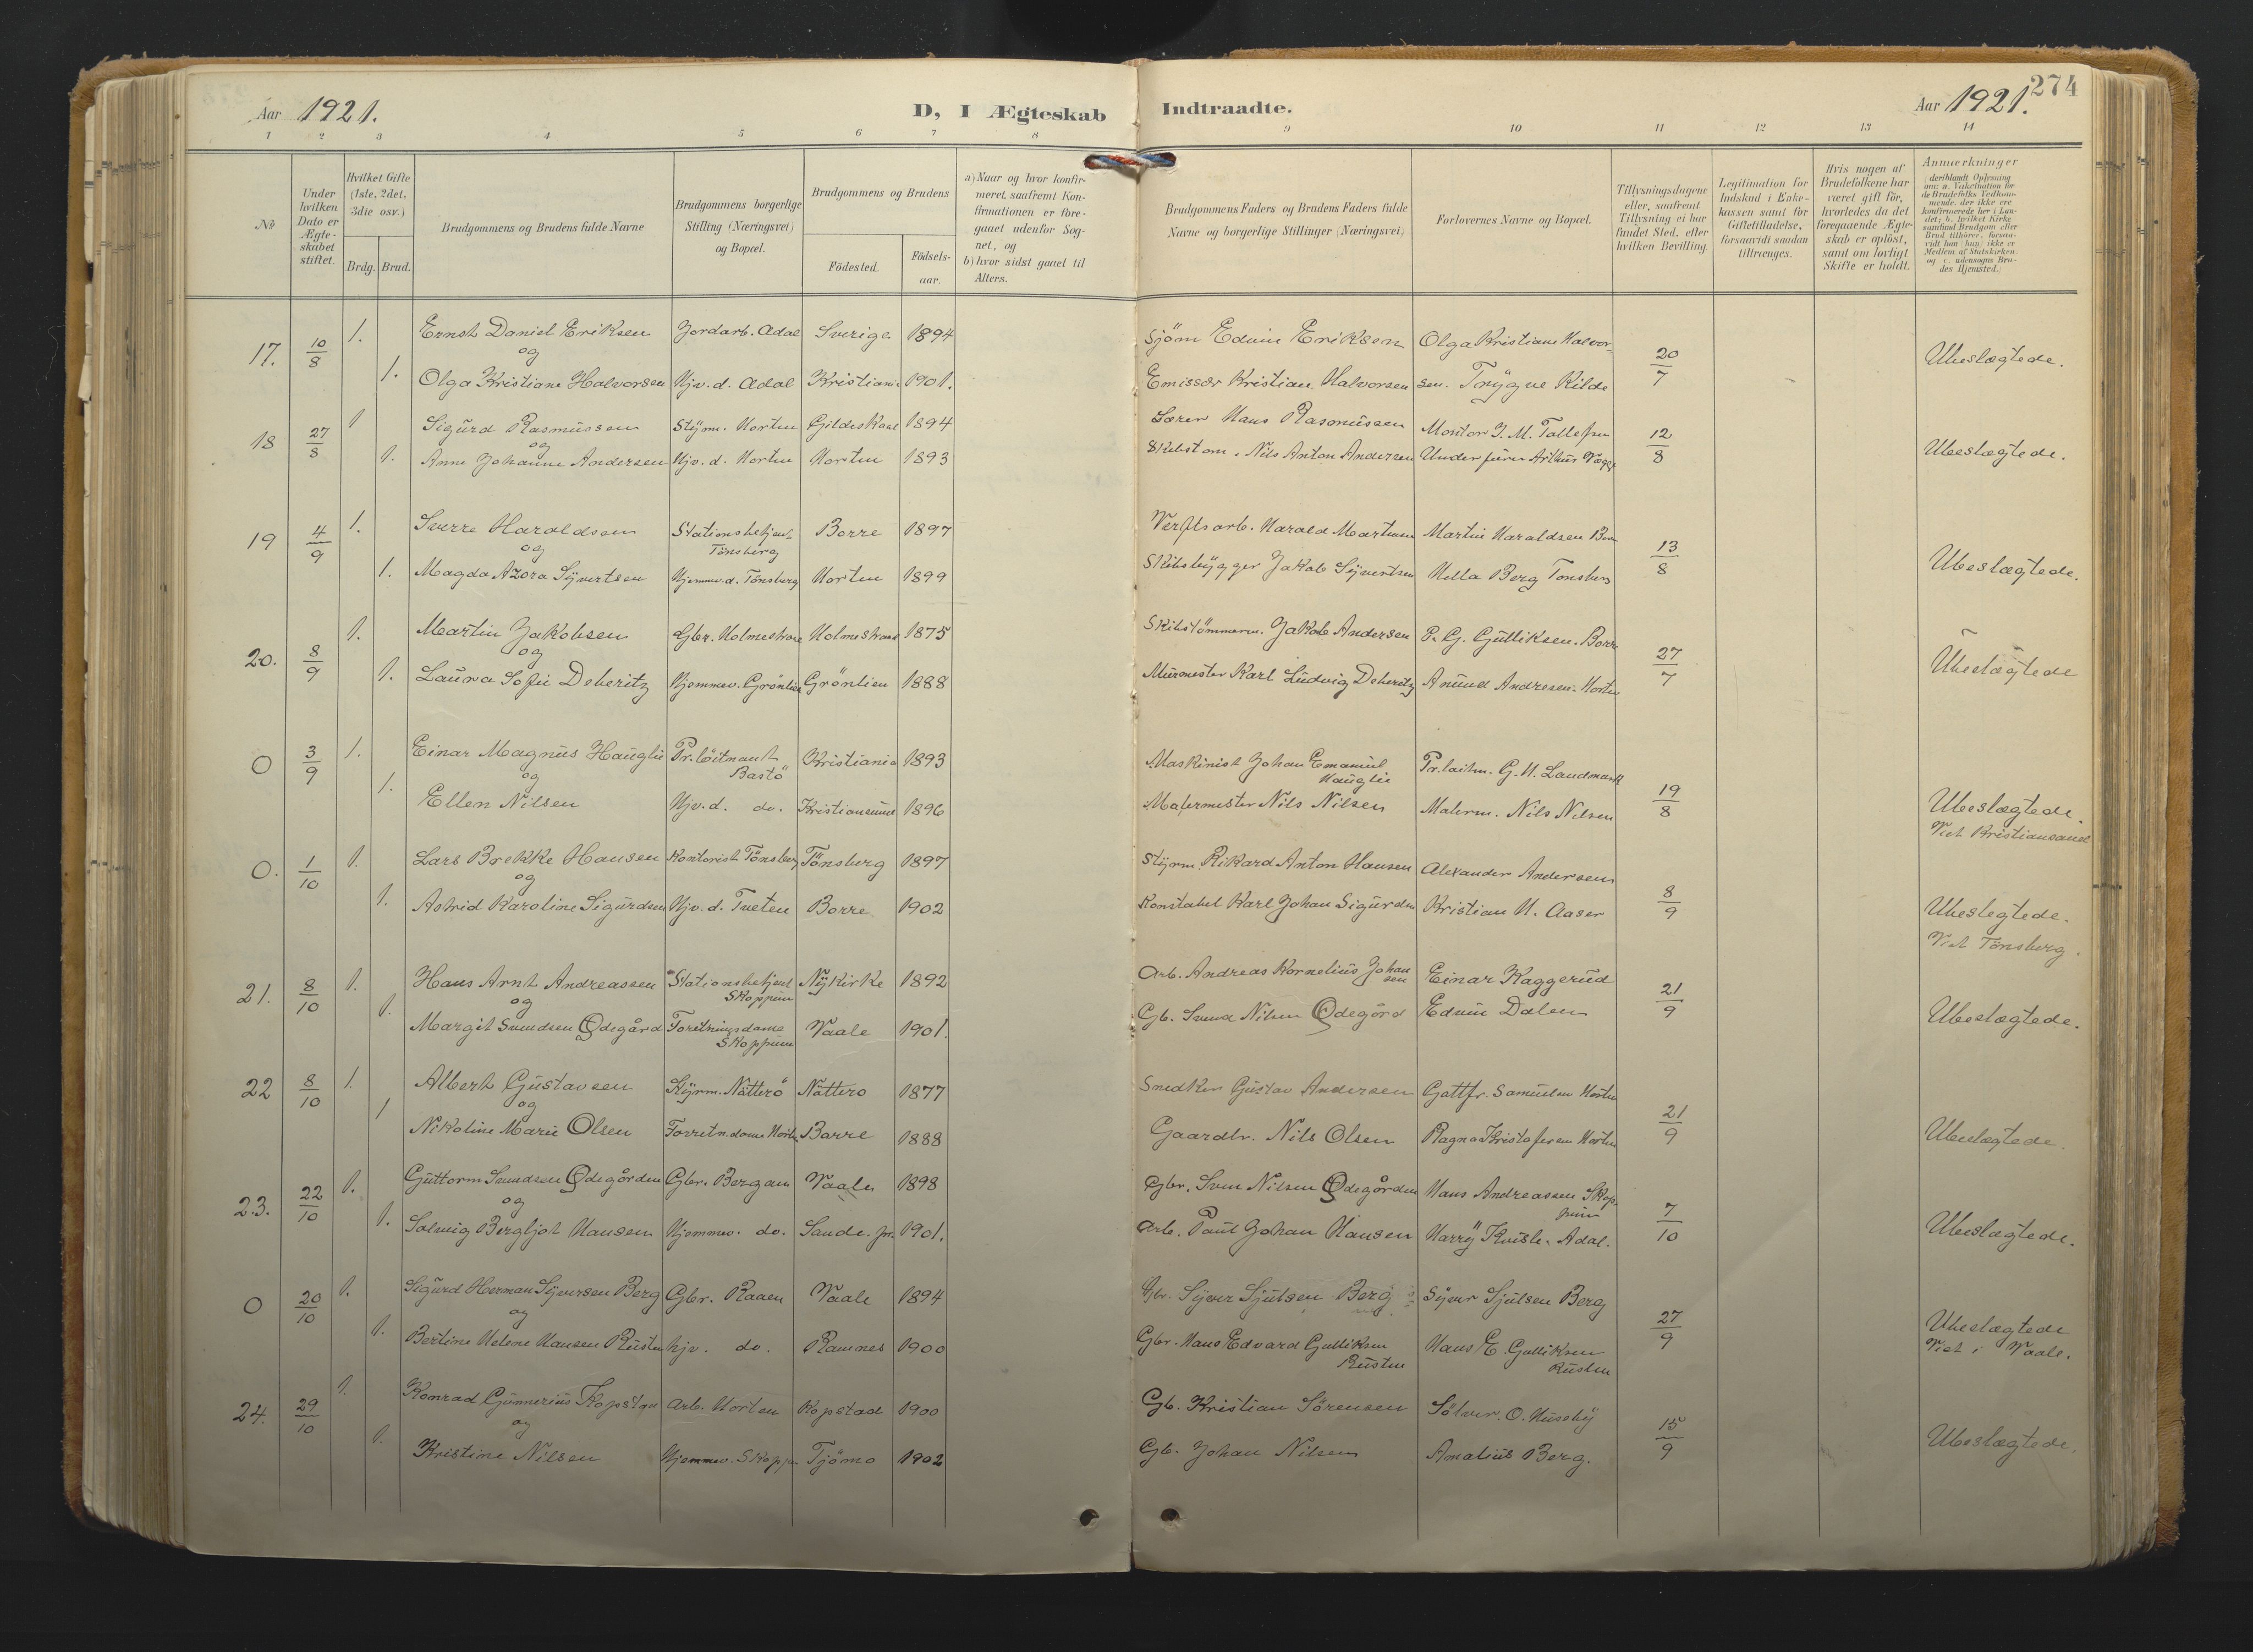 Aar 1921.
D, I Ægteskab Indtraadte.
Aar 1921. 274
1 2 3 4 5 6 7 8 9 10 11 12 13 14
No
Under hvilken Dato er Ægteskabet stiftet.
Hvilket Gifte (1ste, 2det, 3die osv.)
Brdg. Brud.
Brudgommens og Brudens fulde Navne
Brudgommens borgerlige Stilling (Næringsvei) og Bopæl.
Brudgommens og Brudens
Fødested.
Fødselsaar.
a) Naar og hvor konfirmeret, saafremt Konfirmationen er foregaaet udenfor Sognet, og
b) hvor sidst gaaet til Alters.
Brudgommens Faders og Brudens Faders fulde Navne og borgerlige Stillinger (Næringsvei)
Forlovernes Navne og Bopæl.
Tillysningsdagene eller, saafremt Tillysning ei har fundet Sted, efter hvilken Bevilling.
Legitimation for Indskud i Enkekassen samt for Giftetilladelse, forsaavidt saadan tiltrænges.
Hvis nogen af Brudefolkene har været gift før, hvorledes da det foregaaende Ægteskab er opløst, samt om lovligt Skifte er holdt.
Anmerkninger
(deriblandt Oplysning om: a. Vakcination for de Brudefolks Vedkommende, der ikke ere konfirmerede her i Landet; b. hvilket Kirkesamfund Brudgom eller Brud tilhører, forsaavidt han (hun) ikke er Medlem af Statskirken, og c. udensogns Brudes Hjemsted.)
17. 10/8 1. Ernst Daniel Eriksen Jordarb. Adal Sverige 1894 Sjöm Edvin Eriksen Olga Kristiane Halvor-
og 20/7 Ubeslægtede.
1. Olga Kristiane Halvorsen Hjv. d. Adal Kristiania 1901. Emissær Kristian Halvorsen sen. Trygve Kilde
18 27/8 1 Sigurd Rasmussen Styrm. Horten Gildeskaal 1894 Lærer Hans Rasmussen Montør J. M. Tallefsen
og 12/8 Ubeslægtede.
1. Anne Johanne Andersen Hjv. d. Horten Horten 1893 Skibstøm. Nils Anton Andersen Underfürer Arthur
19 4/9 1. Sverre Haraldsen Stationsbetjent Tönsberg Borre 1897 Verftsarb. Harald Martinsen Martin Haraldsen
og 13/8 Ubeslægtede.
1. Magda Azora Syvertsen Hjemmev. d. Tönsberg Horten 1899 Skibsbygger Jakob Syvertsen Hella Berg Tönsberg
20. 8/9 1. Martin Jakobsen Gbr. Holmestrand Holmestrand 1875 Skibstömmerm. Jakob Andersen P. G. Gulliksen. Borre
og 27/7 Ubeslægtede
1. Laura Sofie Deberitz Hjemmev. Grönlien Grönlien 1888 Murmester Karl Ludvig Deberitz Anund Andresen. Horten
0 3/9 1. Einar Magnus Hauglie Pr. löitnant Bastö Kristiania 1893 Maskinist Johan Emanuel Hauglie Pr. laitn. G. H. Landmark
og 19/8 Ubeslægtede.
1. Ellen Nilsen Hjv. d. do. Kristiansund 1896 Malermester Nils Nilsen Malerm. Nils Nilsen
Viet Kristiansand
0. 1/10 1. Lars Brekke Hansen Kontorist Tönsberg Tönsberg 1897 Styrm. Rikard Anton Hansen Alexander Andersen
og 8/9 Ubeslegtede.
1. Astrid Karoline Sigurdsen Hjv. d. Tveten Borre 1902 Konstabel Karl Johan Sigurdsen Kristian H. Aaser
Viet Tönsberg.
21. 8/10 1. Hans Arnt Andreassen Stationsbetjent Skoppum Nykirke 1892 Arb. Andreas Kornelius Johansen Einar Kaggerud
og 21/9 Ubeslægtede.
1. Margit Svendsen Ødegård Forretningsdame Skoppum Vaale 1901. Gb. Svend Nilsen Ødegård Edvin Dalen
22 8/10 1. Albert Gustavsen Styrm. Nötterö Nötterö 1877 Snedker Gustav Andersen Gottfr. Samuelsen Horten
og 21/9 Ubeslægtede.
1 Nikoline Marie Olsen Forretn. dame Horten Borre 1888 Gaardbr. Nils Olsen Ragna Kristofersen Horten
23. 22/10 1. Guttorm Svendsen Ødegården Gbr. Bergan Vaale 1898 Gbr. Sven Nilsen Ødegården Hans Andreassen Skoppum
og 7/10 Ubeslægtede.
1. Solveig Bergljot Hansen Hjemmev. do. Sande pr. 1901. Arb. Paul Johan Hansen Harry Kvisle. Adal.
0 20/10 1. Sigurd Herman Syversen Berg Gbr. Raaen Vaale 1894 Gbr. Syver Sjulsen Berg Syver Sjulsen Berg
og 27/9 Ubeslægtede
1. Bertine Helene Hansen Rusten hjv. do. Ramnes 1900 Gbr. Hans Edvard Gulliksen Rusten Hans E. Gulliksen Rusten
Viet i Vaale.
24. 29/10 1. Konrad Gunnerius Kopstad Arb. Horten Kopstad 1900 Gb. Kristian Sörensen Sölver. O. Huseby
og 15/9 Ubeslægtede.
1. Kristine Nilsen Hjemmev. Skoppum Tjömö 1902 Gb. Johan Nilsen Amalius Berg.